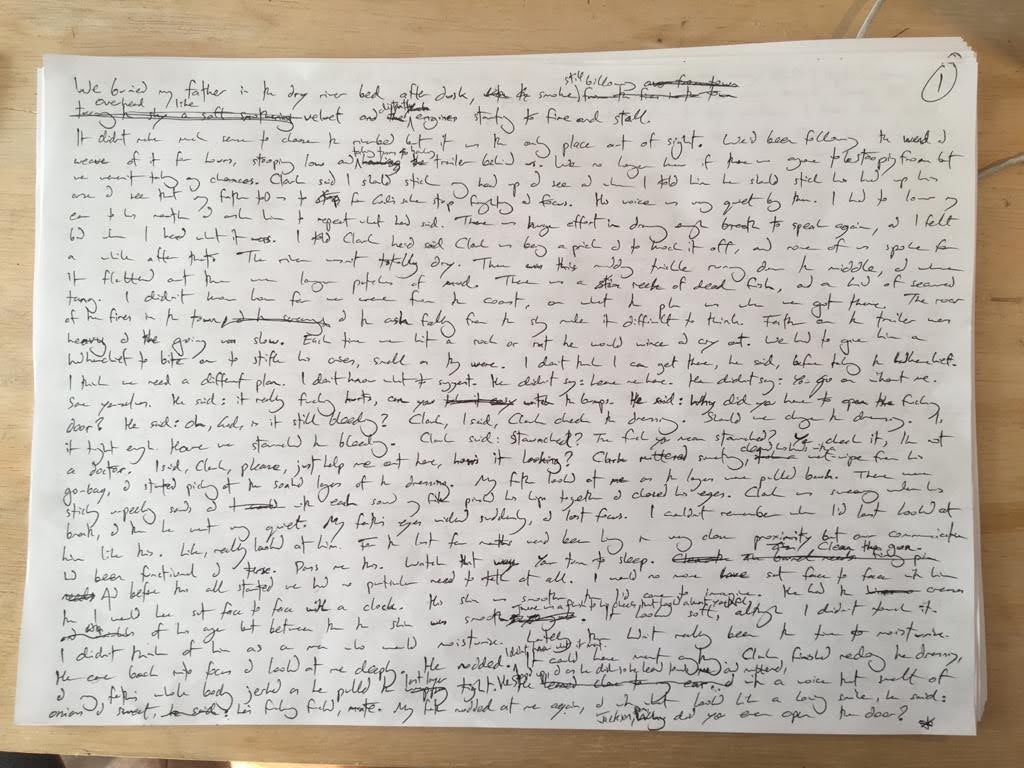 ①
We buried my father in the dry river bed after dusk, the smoke still billowing
overhead like velvet and the engines starting to fire and stall.
It didn't make much sense to choose the riverbed but it was the only place out of sight. We'd been following the weave &
weave of it for hours, stooping low and the trailer behind us. We no longer knew if there was anyone to be stooping from but
we weren't taking any chances. Clark said I should stick my head up & see & when I told him he should stick his head up his
arse I see that my father told us to for God's sake stop fighting & focus. His voice was very quiet by then. I had to lower my
ear to his mouth & ask him to repeat what he'd said. There was huge effort in drawing enough breath to speak again, & I felt
bad when I heard what it was. I told Clark he'd said Clark was being a prick & to knock it off, and none of us spoke for
a while after that. The river wasn't totally dry. There was this muddy trickle running down the middle, & where
it flattened out there were larger patches of mud. There was a reek of dead fish, and a kind of seaweed
tang. I didn't know how far we were from the coast, or what the plan was when we got there. The roar
of the fires in the town & the ash falling from the sky made it difficult to think. Father on the trailer was
heavy & the going was slow. Each time we hit a rock or rut he would wince & cry out. We had to give him a
handkerchief to bite on to stifle his cries, small as they were. I don't think I can get there, he said, before taking the handkerchief.
I think we need a different plan. I don't know what to suggest. He didn't say: Leave me here. He didn't say: You go on without me.
Save yourselves. He said: it really fucking hurts, can you watch the bumps. He said: Why did you have to open the fucking
door? He said: Oh, God, is it still bleeding? Clark, I said, Clark check the dressing. Should we change the dressing. Is
it tight enough. Have we staunched the bleeding. Clark said: Staunched? The fuck you mean staunched? You check it, I'm not
a doctor. I said, Clark, please, just help me out here, how's it looking? Clark muttered something, wipe from his
go-bag, & started picking at the soaked layers of the dressing. My father looked at me as the layers were pulled back. There were
sticky unpeeling sounds & with each sound my father pressed his lips together & closed his eyes. Clark was swearing under his
breath, & then he went very quiet. My father's eyes widened suddenly, & lost focus. I couldn't remember when I'd last looked at
him like this. Like, really looked at him. For the last few months we'd been living in very close proximity but our communication
had been functional & terse. Pass me this. Watch that. Your turn to sleep. Clean the gun.
And before this all started we had no particular need to talk at all. I would no more have sat face to face with him
than I would have sat face to face with a clock. His skin was smoother than I'd come to imagine. He had the creases
of his age but between them the skin was smooth. It looked soft, although I didn't touch it.
I didn't think of him as a man who would moisturise. Lately there hadn't really been the time to moisturise.
He came back into focus & looked at me deeply. He nodded. It could have meant anything. Clark finished redoing the dressing,
& my father's whole body jerked as he pulled the last layer tight. & in a voice that smelt of
onions & sweat, his mate. My father nodded at me again, & with what looked like a loving smile, he said:
Jackson, why did you even open the door? *